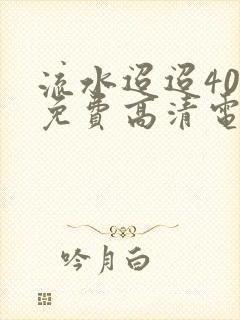 流水迢迢40
免費高清電
吟月白